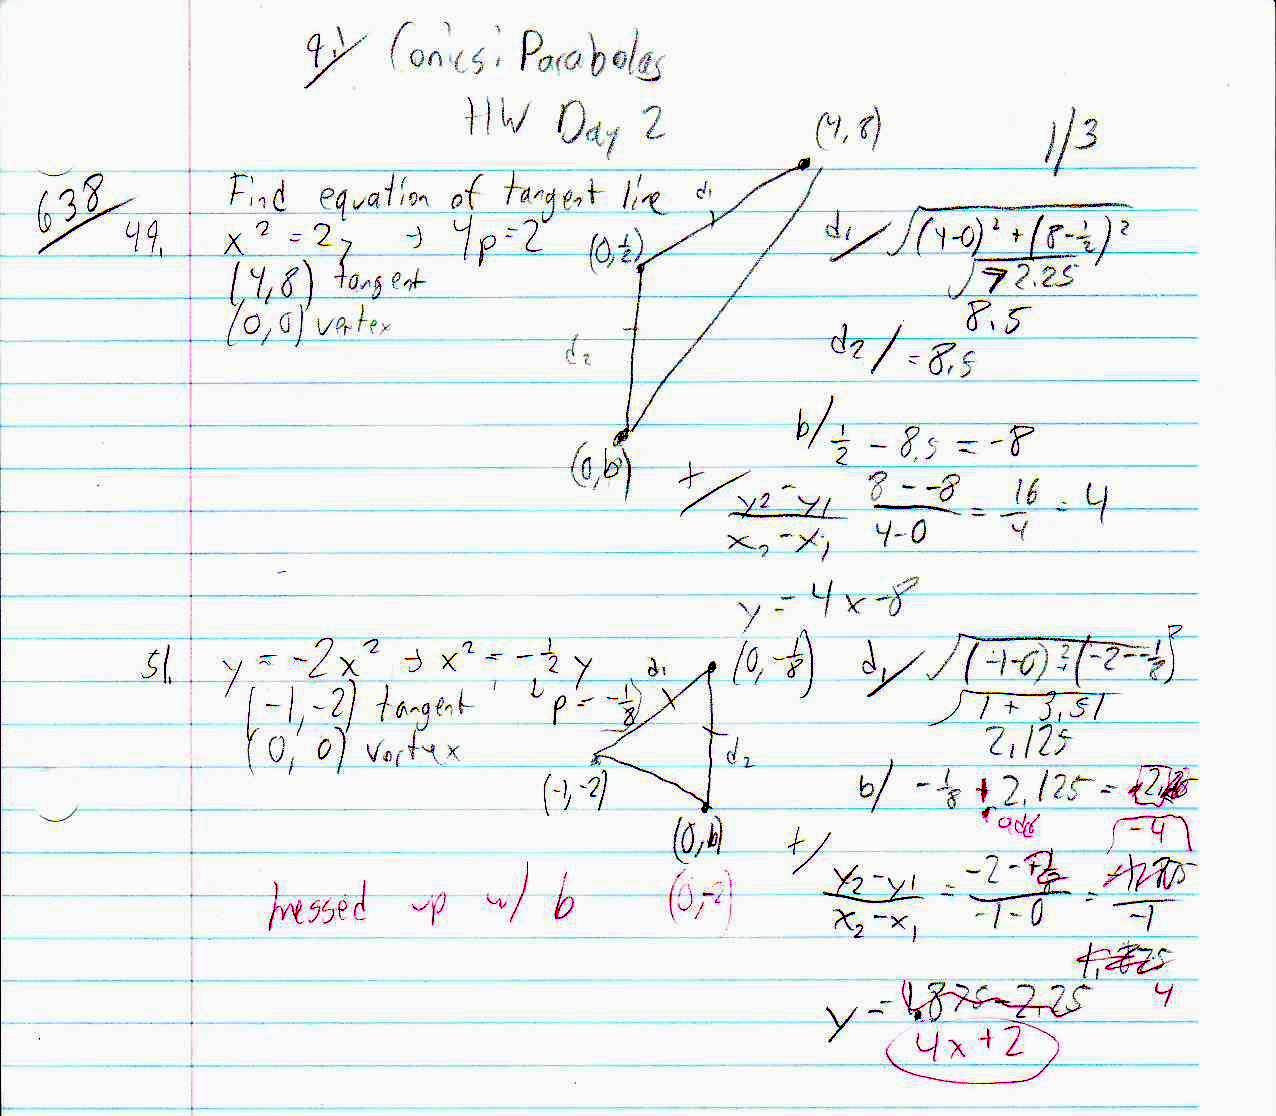 9.1/ Conics: Parabolas
HW Day 2
1/3
638
49. Find equation of tangent line
x² = 2y → 4p = 2
(4,8) tangent
(0,0) vertex
(4,8)
d₁
(0, 1/2)
d₂
(0,b)
d₁/ √(4-0)² + (8-1/2)²
√72.25
8.5
d₂/ = 8.5
b/ 1/2 - 8.5 = -8
y₂-y₁/x₂-x₁ 8--8/4-0 = 16/4 = 4
y = 4x-8
51. y = -2x² → x² = -1/2 y
(-1,-2) tangent p = -1/8
(0, 0) vertex
d₁
(0, -1/8)
d₂
(-1,-2)
(0,b)
(0,-2)
messed up w/ b
d₁/ √(-1-0)² + (-2--1/8)²
√1 + 3.51
2.125
b/ -1/8 + 2.125 =
add
-4
y₂-y₁/x₂-x₁ = -2- /-1-0 = /-1
4
y = 1.875-2.25
4x+2